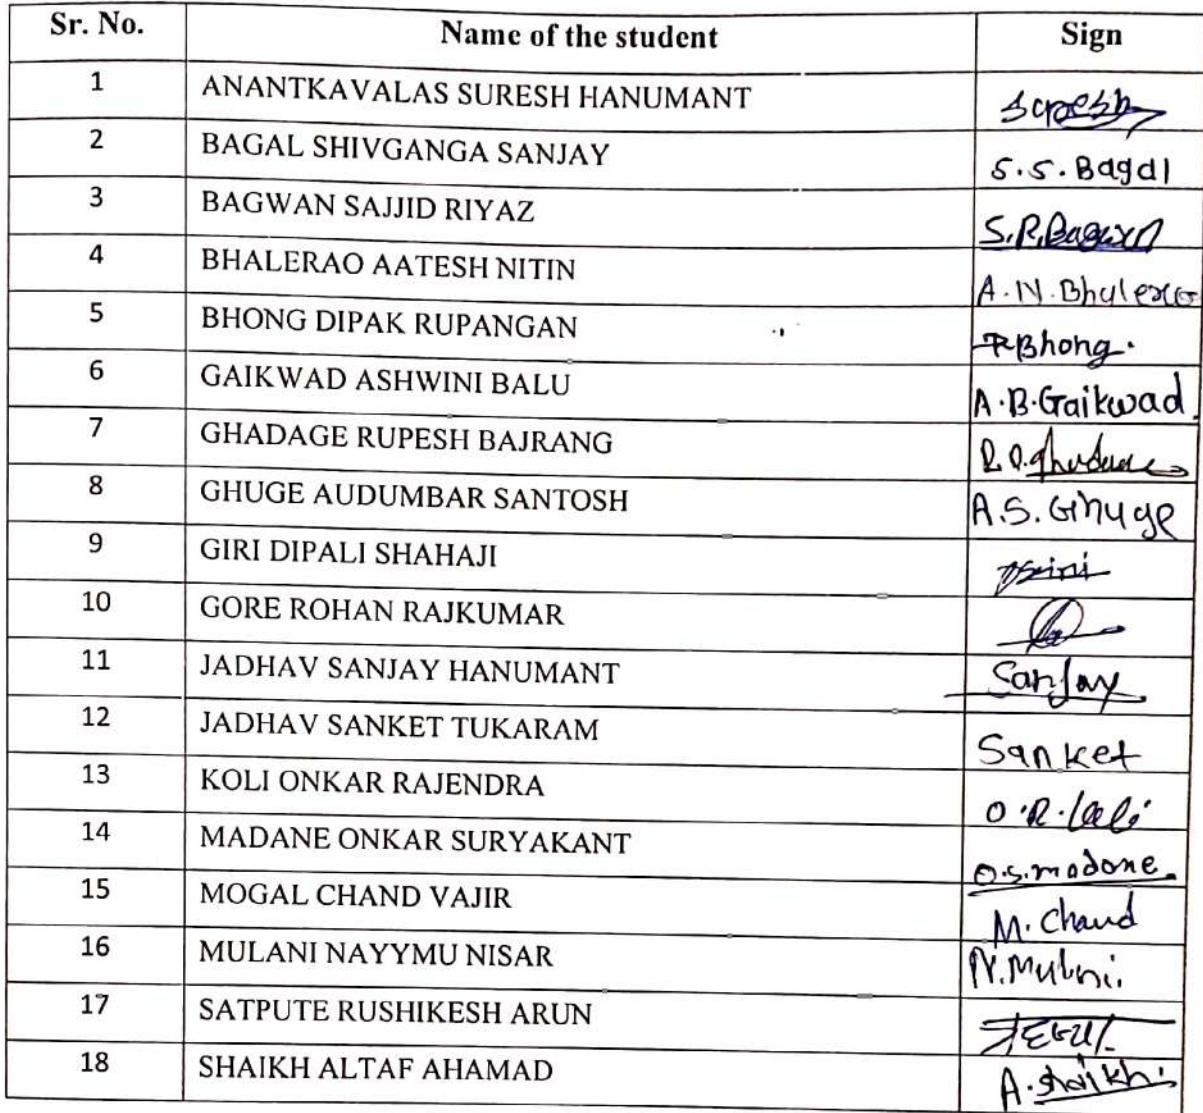 Sr. No. Name of the student Sign
1 ANANTKAVALAS SURESH HANUMANT Suresh
2 BAGAL SHIVGANGA SANJAY S.S.Bagal
3 BAGWAN SAJJID RIYAZ S.R.Bagwan
4 BHALERAO AATESH NITIN A.N.Bhalerao
5 BHONG DIPAK RUPANGAN Bhong.
6 GAIKWAD ASHWINI BALU A.B.Gaikwad
7 GHADAGE RUPESH BAJRANG
8 GHUGE AUDUMBAR SANTOSH A.S.Ghuge
9 GIRI DIPALI SHAHAJI
10 GORE ROHAN RAJKUMAR
11 JADHAV SANJAY HANUMANT Sanjay
12 JADHAV SANKET TUKARAM Sanket
13 KOLI ONKAR RAJENDRA O.R.Koli
14 MADANE ONKAR SURYAKANT O.S.madane
15 MOGAL CHAND VAJIR M.Chand
16 MULANI NAYYMU NISAR N.Mulani.
17 SATPUTE RUSHIKESH ARUN
18 SHAIKH ALTAF AHAMAD A.shaikh